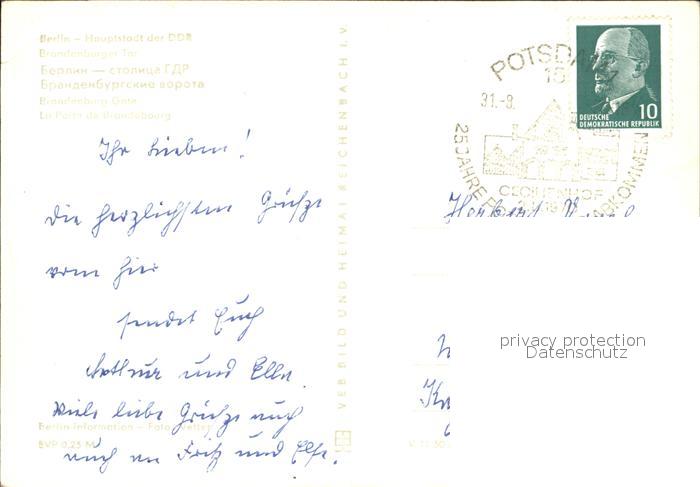 Berlin – Hauptstadt der DDR
Brandenburger Tor
Берлин — столица ГДР
Бранденбургские ворота
Brandenburg Gate
La Porte de Brandebourg
Ihr Lieben!
die herzlichsten Grüße
von hier
sendet Euch
Arthur und Elle
Viele liebe Grüße auch
auch an Fritz und Else.
Berlin-Information – Foto:
EVP 0,25 M
VEB BILD UND HEIMAT REICHENBACH I. V.
POTSDAM
15
31.-8.
25 JAHRE
ABKOMMEN
CECILIENHOF
10
DEUTSCHE
DEMOKRATISCHE REPUBLIK
Herbert
privacy protection
Datenschutz